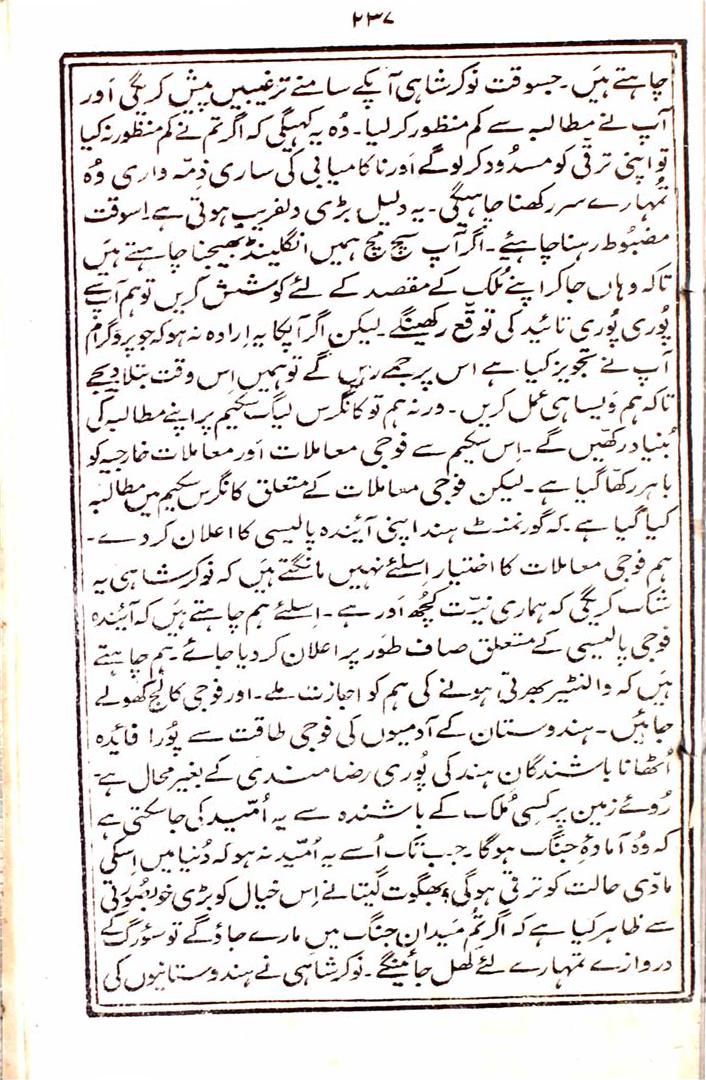 ۲۳۷
چاہتے ہیَں۔ جسوقت نوکر شاہی آپکے سامنے ترغیبیں پیش کریگی اَور
آپ نے مطالبہ سے کم منظور کرلیا۔ وُہ یہ کہیگی کہ اگر تم نے کم منظور نہ کیا
تو اپنی ترقی کو مسدُود کر لوگے اَور ناکامیابی کی ساری ذِمّہ واری وُہ
تُمہارے سر رکھنا چاہیگی۔ یہ دلیل بڑی دلفریب ہوتی ہے اِسوقت
مضبُوط رہنا چاہیئے۔ اگر آپ سچ مچ ہمیں انگلینڈ بھیجنا چاہتے ہیں
تاکہ وہاں جاکر اپنے مُلک کے مقصد کے لئے کوشش کریں تو ہم آپ سے
پُوری پُوری تائید کی توقع رکھینگے۔ لیکن اگر آپکا یہ اِرادہ نہ ہو کہ جو پروگرام
آپ نے تجویز کیا ہے اس پر جمے رہیں گے تو ہمیں اِس وقت بتلا دیجے
تاکہ ہم ویسا ہی عمل کریں۔ ورنہ ہم تو کانگرس لیگ سکیم پر اپنے مطالبہ کی
بُنیاد رکھّیں گے۔ اِس سکیم سے فوجی معاملات اَور معاملات خارجیہ کو
باہر رکھّا گیا ہے۔ لیکن فوجی معاملات کے متعلق کانگرس سکیم میں مطالبہ
کیا گیا ہے۔ کہ گورنمنٹ ہند اپنی آئیندہ پالیسی کا اعلان کر دے۔
ہم فوجی معاملات کا اختیار اِسلئے نہیں مانگتے ہیَں کہ نوکر شاہی یہ
شک کریگی کہ ہماری نیّت کُچھ اَور ہے۔ اِسلئے ہم چاہتے ہیَں کہ آئیندہ
فوجی پالیسی کے متعلق صاف طَور پر اعلان کر دیا جائے۔ ہم چاہتے
ہیَں کہ والنٹیر بھرتی ہونے کی ہم کو اجازت ملے۔ اور فوجی کالج کھولے
جائیں۔ ہندوستان کے آدمیوں کی فوجی طاقت سے پُورا فائدہ
اُٹھانا باشندگانِ ہند کی پُوری رضامندی کے بغیر محال ہے۔
رُوئے زمین پر کسی مُلک کے باشندہ سے یہ اُمّید کی جا سکتی ہے
کہ وُہ آمادۂ جنگ ہوگا۔ جب تک اُسے یہ اُمّید نہ ہو کہ دُنیا میں اِسکی
مادّی حالت کو ترقی ہوگی؟ بھگوت گیتا نے اِس خیال کو بڑی خوبصُورتی
سے ظاہر کیا ہے کہ اگر تُم مَیدانِ جنگ میں مارے جاؤگے تو سوَرگ کے
دروازے تمہارے لئے کھل جائینگے۔ نوکر شاہی نے ہندوستانیوں کی